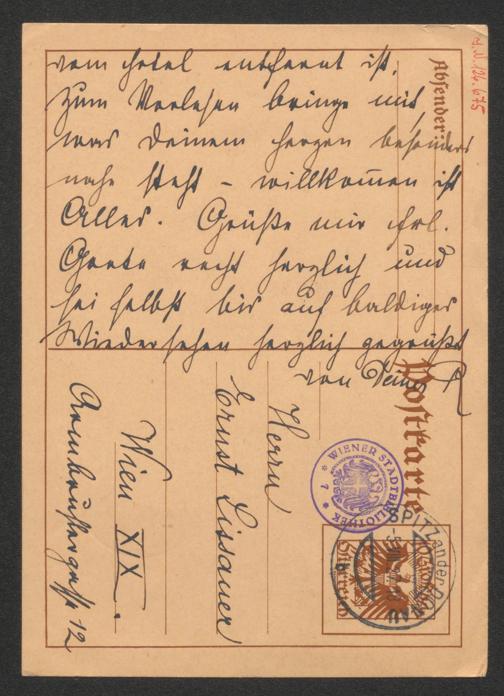 vom Hotel entfernt ist.
Zum Vorlesen bringe mit
was Deinem Herzen besonders
nahe steht – willkom̅en ist
Alles. Grüße mir Frl.
Grete recht herzlich und
sei selbst bis auf baldiges
Wiedersehen herzlich gegrüßt
von Deinem R
Absender:
H.N. 124.675
Postkarte
Herrn
Ernst Lissauer
Wien XIX.
Armbrustergasse 12
WIENER STADTBIBLIOTHEK
* 7 *
SPITZ an der DONAU
Österreich